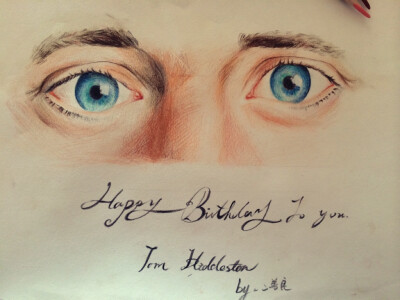 Happy Birthday To you.
Tom Hiddleston
by